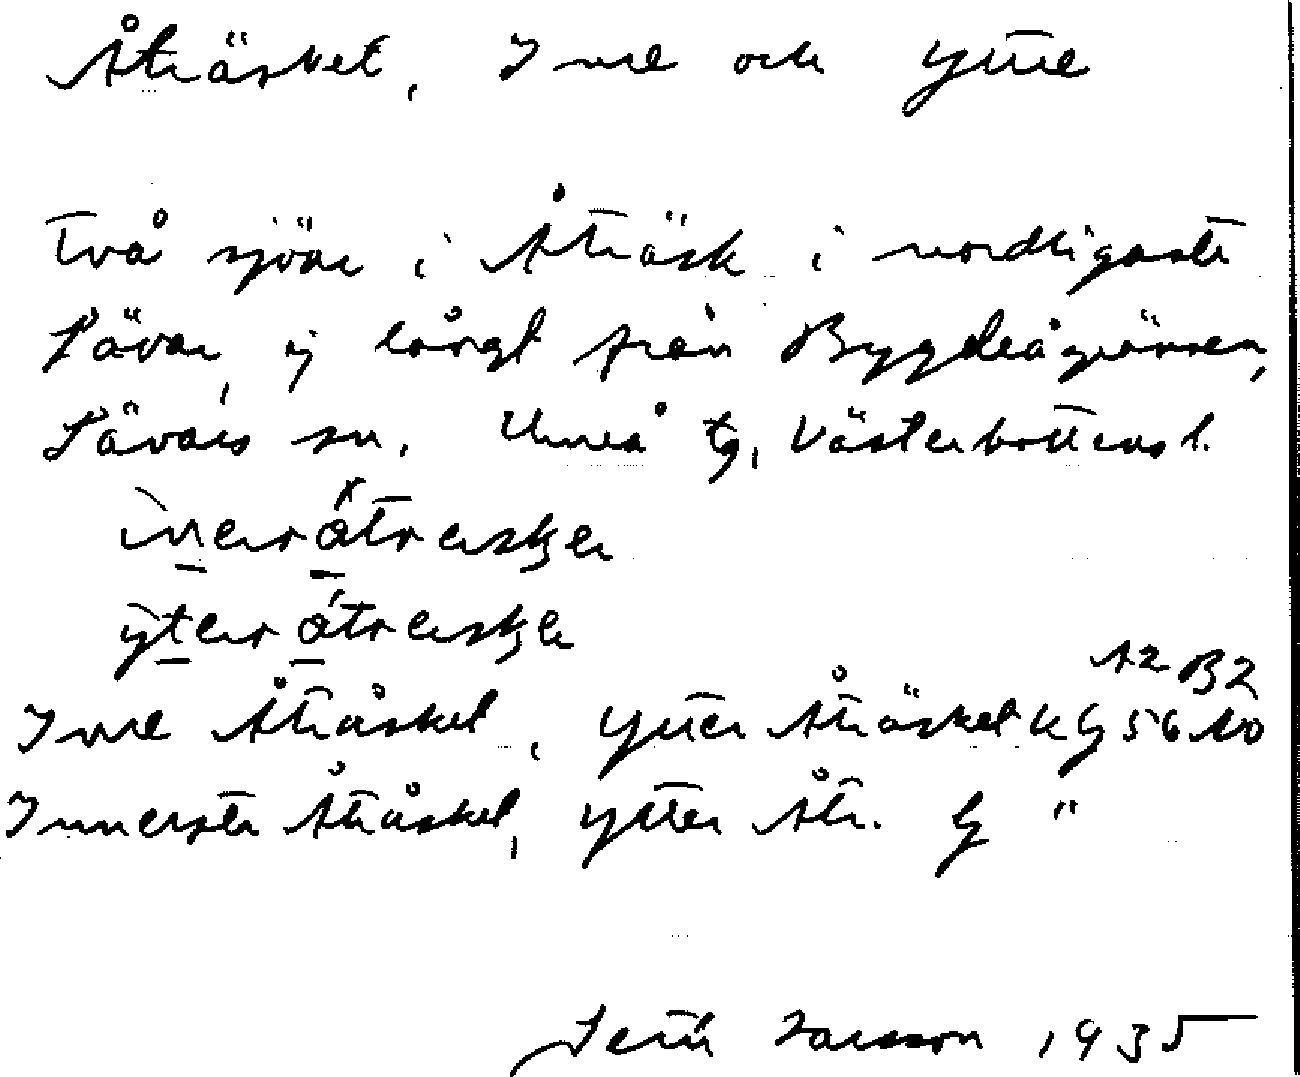 Åträsket, Inre och Yttre
Två sjöar i Åträsk i nordligaste
Sävar, ej långt från Bygdeågränsen,
Sävars sn. Umeå tg, Västerbottens l.
Inre Åträsket, Ytter Åträsket k G 56
A2 B2
Innerste Åträsket, Ytter Åtr. G "
Larsson 1935